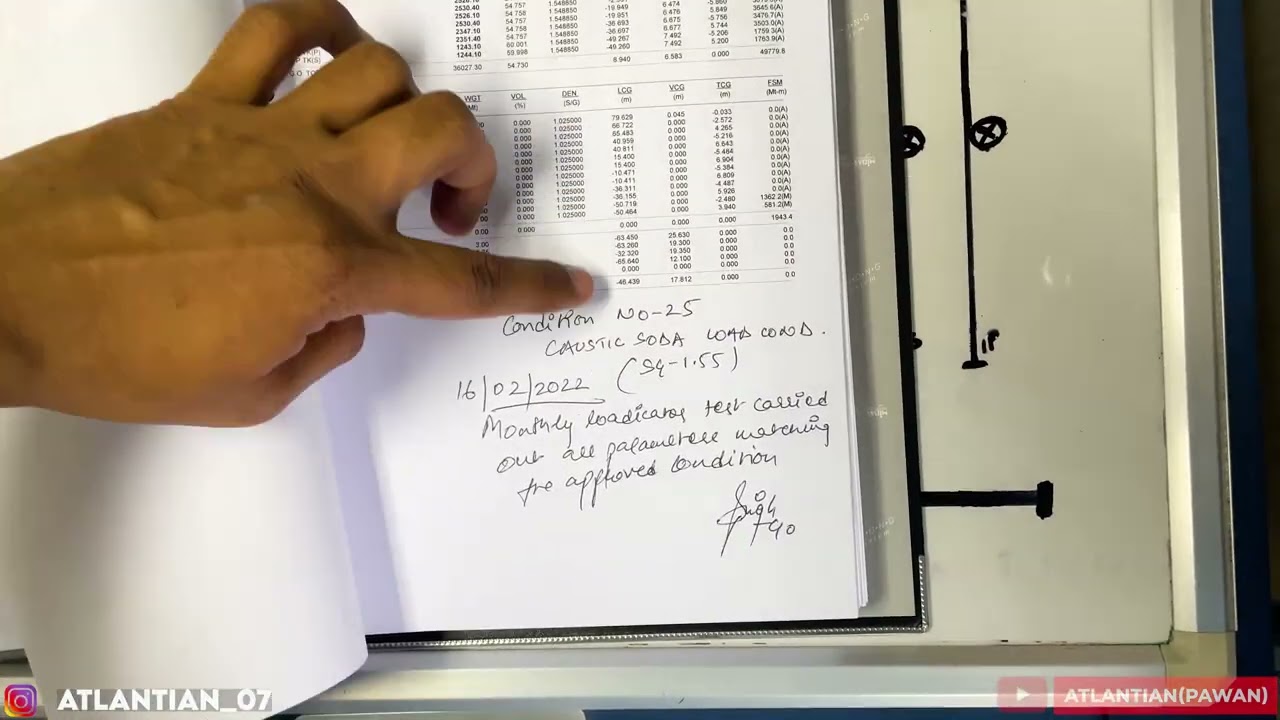 2530.40 54.757 1.548850 -19.949 6.474 -5.860 3645.6(A)
2526.10 54.757 1.548850 -19.951 6.476 5.849 3476.7(A)
2530.40 54.757 1.548850 -36.693 6.675 -5.756 3503.0(A)
2347.10 54.758 1.548850 -36.697 6.677 5.744 1759.3(A)
2351.40 54.757 1.548850 -49.267 7.492 -5.206 1763.9(A)
1243.10 60.001 1.548850 -49.260 7.492 5.200
1244.10 59.998
36027.30 54.730 8.940 6.583 0.000 49779.8
WGT VOL DEN LCG VCG TCG FSM
(%) (S/G) (m) (m) (m) (Mt-m)
0.000 1.025000 79.629 0.045 -0.033 0.0(A)
0.000 1.025000 66.722 0.000 -2.572 0.0(A)
0.000 1.025000 65.483 0.000 4.265 0.0(A)
0.000 1.025000 40.959 0.000 -5.216 0.0(A)
0.000 1.025000 40.811 0.000 6.643 0.0(A)
0.000 1.025000 15.400 0.000 -5.484 0.0(A)
0.000 1.025000 15.400 0.000 6.904 0.0(A)
0.000 1.025000 -10.471 0.000 -5.384 0.0(A)
0.000 1.025000 -10.411 0.000 6.809 0.0(A)
0.000 1.025000 -36.311 0.000 -4.487 0.0(A)
0.000 1.025000 -36.155 0.000 5.926 0.0(A)
0.000 1.025000 -50.719 0.000 -2.480 1362.2(M)
0.000 1.025000 -50.464 0.000 3.940 581.2(M)
0.000 0.000 0.000 0.000 1943.4
-63.450 25.630 0.000 0.0
-63.260 19.300 0.000 0.0
-32.320 19.350 0.000 0.0
-65.640 12.100 0.000 0.0
0.000 0.000 0.000 0.0
-46.439 17.812 0.000 0.0
Condition NO-25
CAUSTIC SODA LOAD COND.
(SG-1.55)
16/02/2022
Monthly loadicator test carried
out all parameters matching
the approved condition
ATLANTIAN_07
ATLANTIAN(PAWAN)